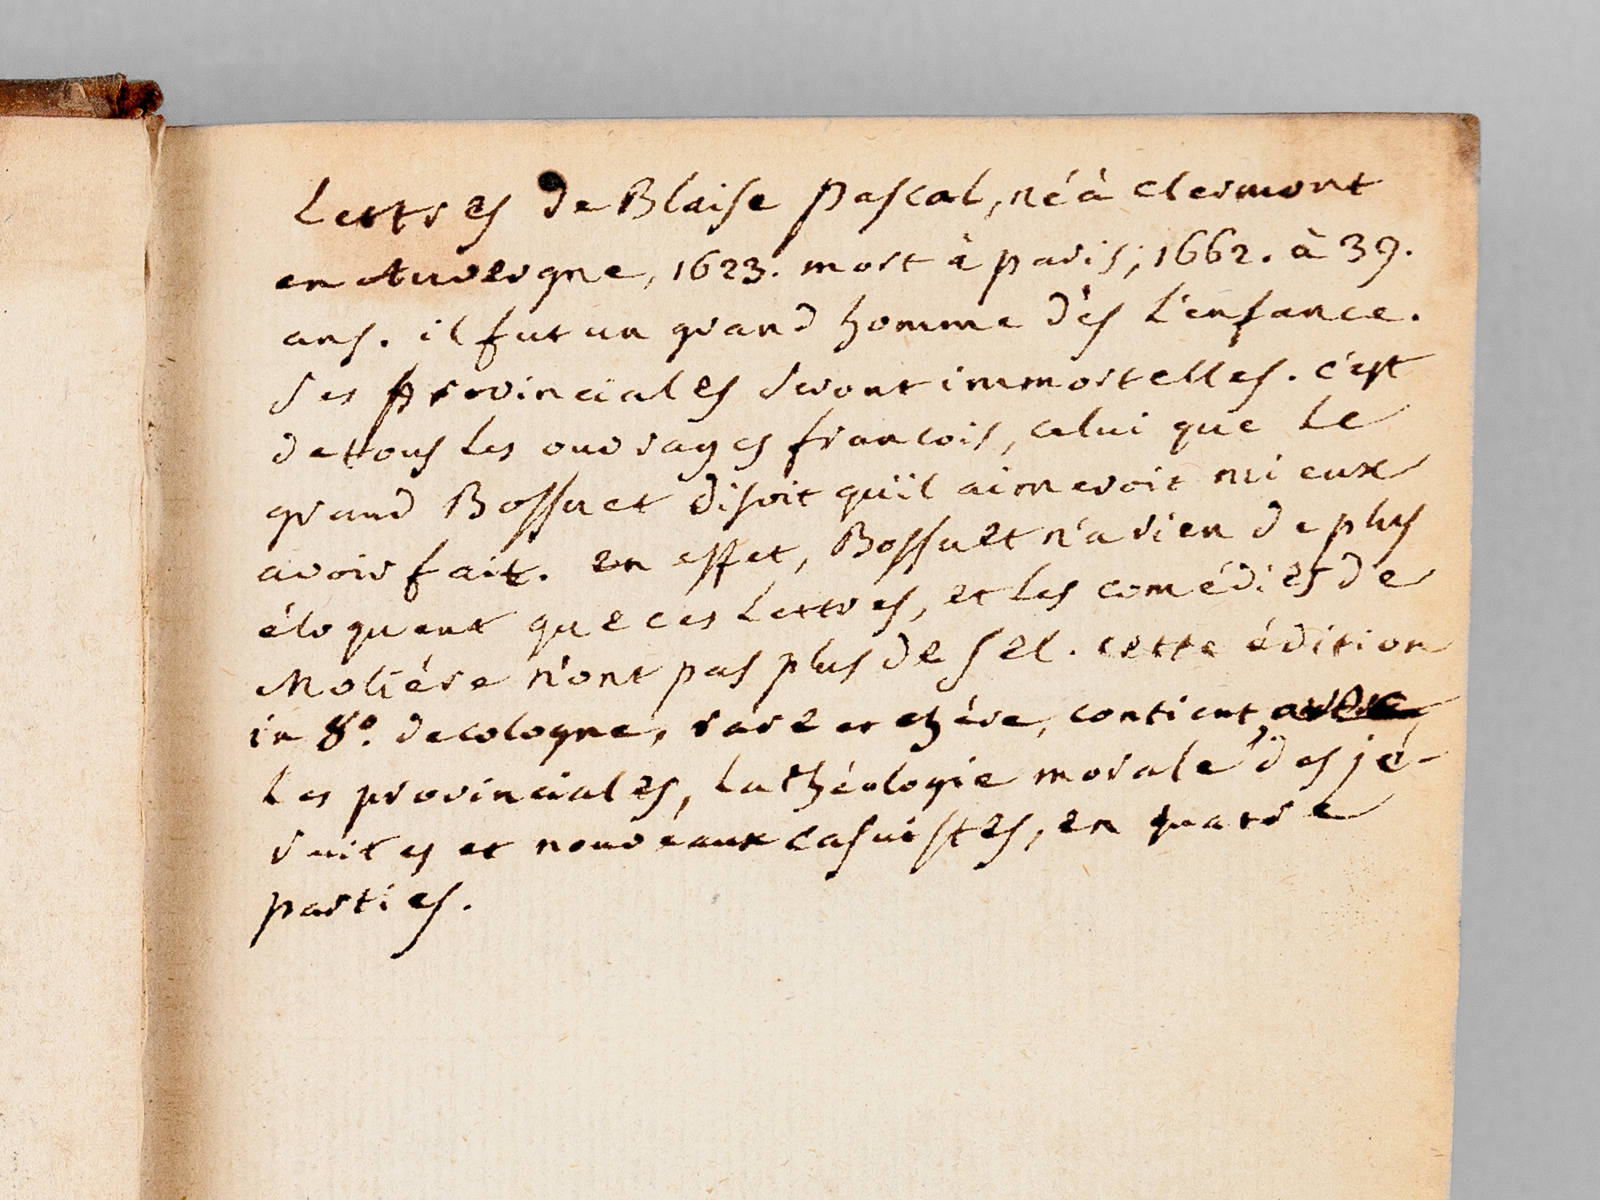 Lettres de Blaise Pascal, né à Clermont
en Auvergne, 1623. mort à paris; 1662. à 39.
ans. il fut un grand homme dès L'enfance.
ses provinciales seront immortelles. c'est
de tous les ouvrages francois, celui que Le
grand Bossuet disoit qu'il aimeroit mieux
avoir fait. en effet, Bossuet n'a rien de plus
éloquent que ces Lettres, et les comédies de
Moliére n'ont pas plus de sel. cette édition
in 8º. de cologne, rare et chére, contient, avec
Les provinciales, La théologie morale des jé-
suites et nouveaux casuistes, en quatre
parties.